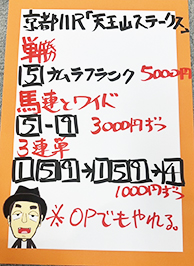 京都11R「天王山ステークス」
単勝
5 ナムラフランク 5000円
馬連とワイド
5-9 3000円ずつ
3連単
159→159→4
1000円ずつ
※OPでもやれる。